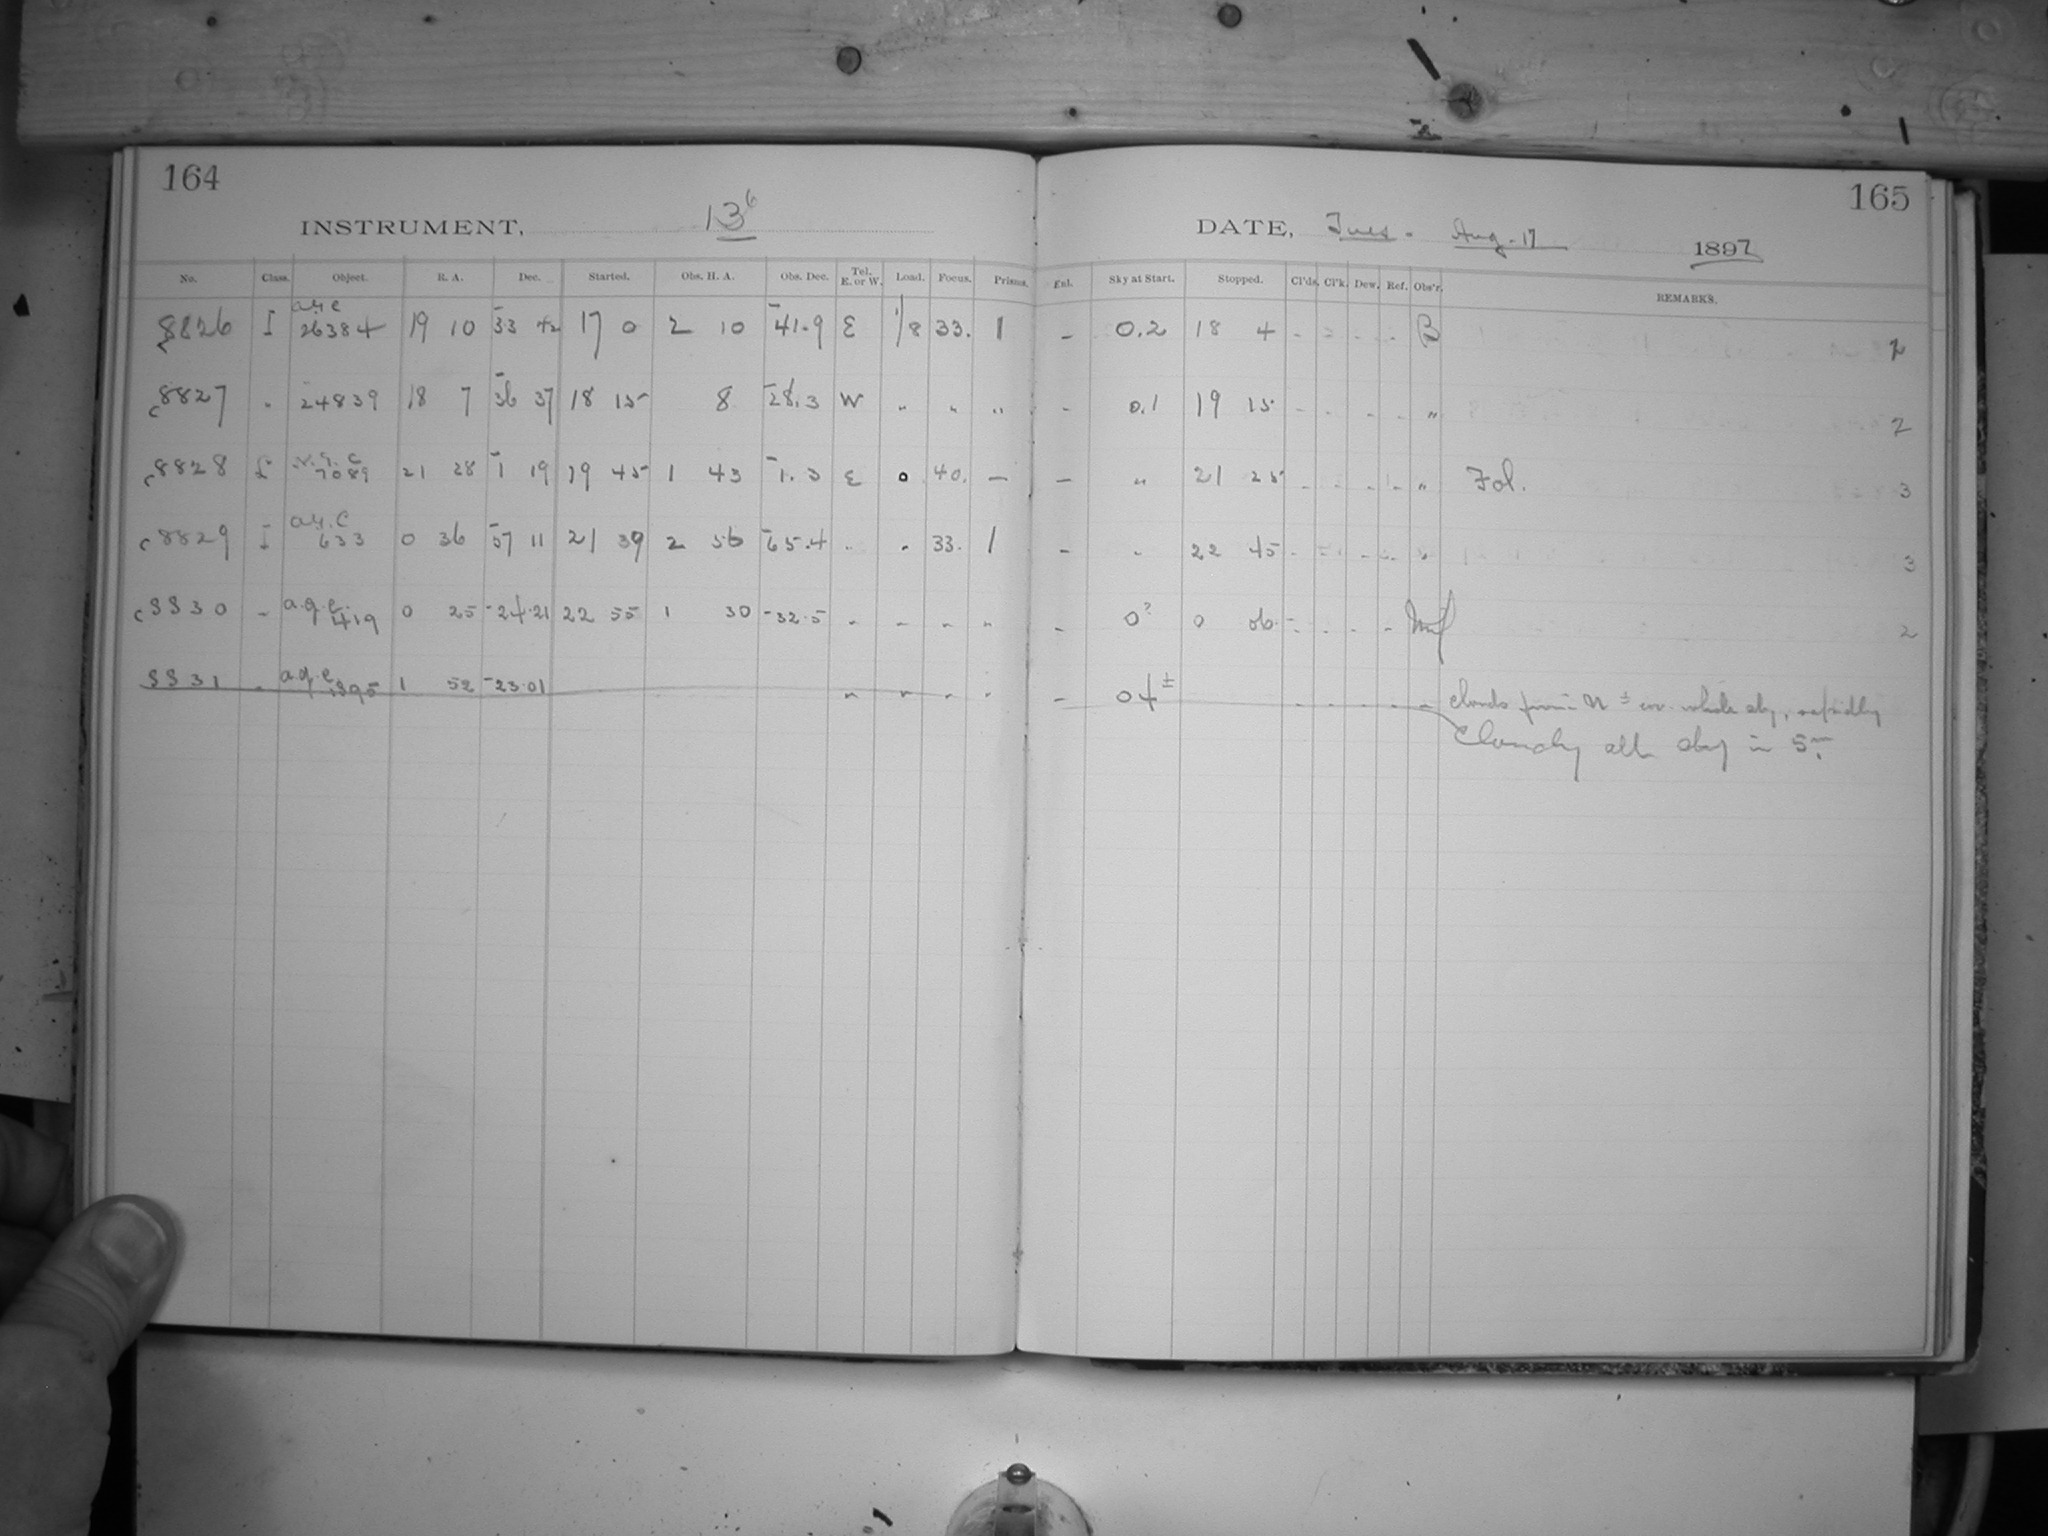 164
INSTRUMENT, 13
No. Class. Object. R. A. Dec. Started. Obs. H. A. Obs. Dec. Tel. E. or W. Load. Focus. Prisms.
8826 I a.g.c 26384 19 10 -33 42 17 0 2 10 -41.9 E 1/8 33. 1
c8827 " 24839 18 7 -36 37 18 15 8 -28.3 W " " "
c8828 n.g.c 7089 21 28 -1 19 19 45 1 43 -1.3 E 0 40. -
c8829 I a.g.c 633 0 36 -57 11 21 39 2 56 -65.4 " " 33. 1
c8830 " a.g.c. 419 0 25 -24.21 22 55 1 30 -32.5 " " " "
8831 " a.g.c. 1 52 -23.01 " " " "
165
DATE, Tues. Aug. 17 1897
Enl. Sky at Start. Stopped. Cl'ds. Cl'k. Dew. Ref. Obs'r. REMARKS.
- 0.2 18 4 - - - - B 2
- 0.1 19 15 - - - - " 2
- " 21 25 - - - - " Fol. 3
- " 22 45 - - - - " 3
- 0? 0 06 - - - - 2
- 04± - - - - - clouds from N ± whole sky, rapidly
Cloudy all sky in 5m.